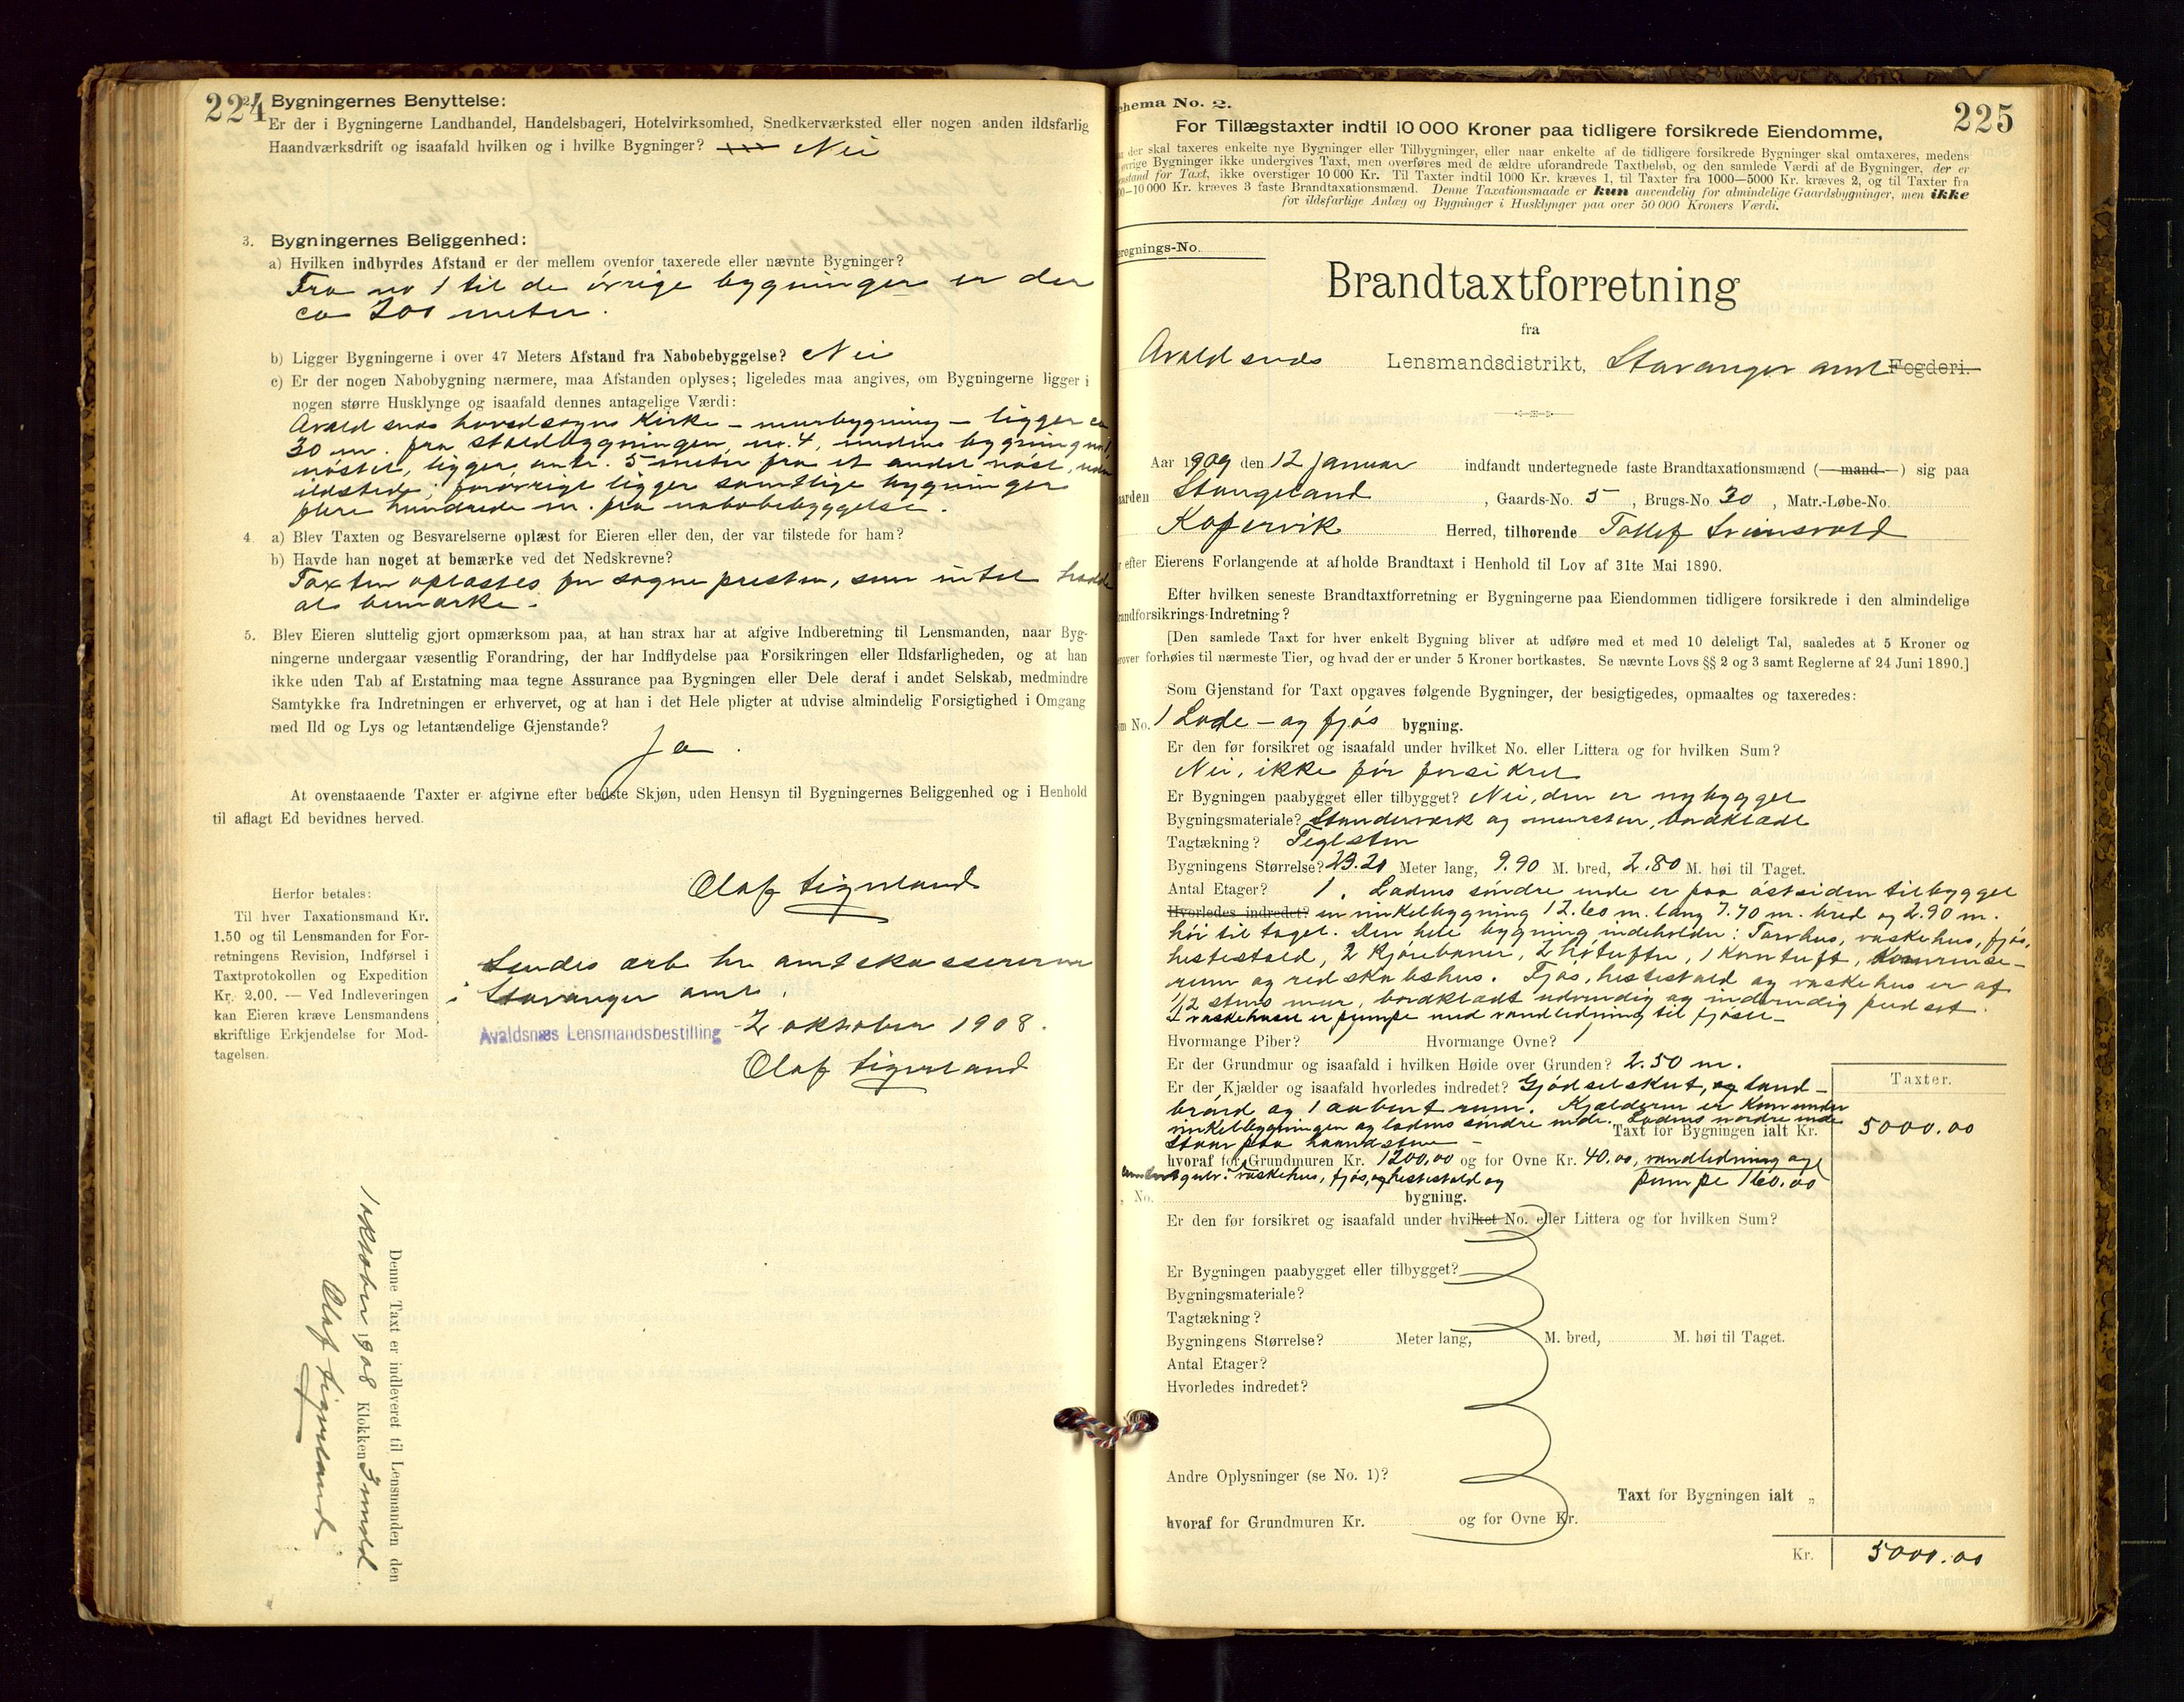 224
2. Bygningernes Benyttelse:
Er der i Bygningerne Landhandel, Handelsbageri, Hotelvirksomhed, Snedkerværksted eller nogen anden ildsfarlig
Haandværksdrift og isaafald hvilken og i hvilke Bygninger? Nei
3. Bygningernes Beliggenhed:
a) Hvilken indbyrdes Afstand er der mellem ovenfor taxerede eller nævnte Bygninger?
Fra no 1 til de øvrige bygninger er der
ca 300 meter.
b) Ligger Bygningerne i over 47 Meters Afstand fra Nabobebyggelse? Nei
c) Er der nogen Nabobygning nærmere, maa Afstanden oplyses; ligeledes maa angives, om Bygningerne ligger i
nogen større Husklynge og isaafald dennes antagelige Værdi:
Avaldsnes hovedsogns Kirke – murbygning – ligger ca
30 m. fra staldbygningen, no. 4, medens bygning no 1,
nøstet, ligger omtr. 5 meter fra et andet nøst, uden
ildsted; forøvrigt ligger samtlige bygninger
flere hundrede m. fra nabobebyggelse.
4. a) Blev Taxten og Besvarelserne oplæst for Eieren eller den, der var tilstede for ham?
b) Havde han noget at bemærke ved det Nedskrevne?
Taxten oplæstes for sogne presten, som intet havde
at bemærke.
5. Blev Eieren sluttelig gjort opmærksom paa, at han strax har at afgive Indberetning til Lensmanden, naar Byg-
ningerne undergaar væsentlig Forandring, der har Indflydelse paa Forsikringen eller Ildsfarligheden, og at han
ikke uden Tab af Erstatning maa tegne Assurance paa Bygningen eller Dele deraf i andet Selskab, medmindre
Samtykke fra Indretningen er erhvervet, og at han i det Hele pligter at udvise almindelig Forsigtighed i Omgang
med Ild og Lys og letantændelige Gjenstande?
Ja.
At ovenstaaende Taxter er afgivne efter bedste Skjøn, uden Hensyn til Bygningernes Beliggenhed og i Henhold
til aflagt Ed bevidnes herved.
Olaf Eigeland
Herfor betales:
Til hver Taxationsmand Kr.
1.50 og til Lensmanden for For-
retningens Revision, Indførsel i
Taxtprotokollen og Expedition
Kr. 2.00. — Ved Indleveringen
kan Eieren kræve Lensmandens
skriftlige Erkjendelse for Mod-
tagelsen.
Sendes ærb. hr amtskassereren
i Stavanger amt.
Avaldsnæs Lensmandsbestilling 2 oktober 1908.
Olaf Eigeland
Denne Taxt er indleveret til Lensmanden den
1 oktober 1908 Klokken 3 midd.
Olaf Eigeland
225
chema No. 2.
For Tillægstaxter indtil 10 000 Kroner paa tidligere forsikrede Eiendomme,
der skal taxeres enkelte nye Bygninger eller Tilbygninger, eller naar enkelte af de tidligere forsikrede Bygninger skal omtaxeres, medens
øvrige Bygninger ikke undergives Taxt, men overføres med de ældre uforandrede Taxtbeløb, og den samlede Værdi af de Bygninger, der er
enstand for Taxt, ikke overstiger 10 000 Kr. Til Taxter indtil 1000 Kr. kræves 1, til Taxter fra 1000—5000 Kr. kræves 2, og til Taxter fra
00—10 000 Kr. kræves 3 faste Brandtaxationsmænd. Denne Taxationsmaade er kun anvendelig for almindelige Gaardsbygninger, men ikke
for ildsfarlige Anlæg og Bygninger i Husklynger paa over 50 000 Kroners Værdi.
eregnings-No.
Brandtaxtforretning
fra
Avaldsnes Lensmandsdistrikt, Stavanger amt Fogderi.
Aar 1909 den 12 januar indfandt undertegnede faste Brandtaxationsmænd (—mand—) sig paa
aarden Stangeland, Gaards-No. 5, Brugs-No. 30, Matr.-Løbe-No.
Kopervik Herred, tilhørende Tollef
efter Eierens Forlangende at afholde Brandtaxt i Henhold til Lov af 31te Mai 1890.
Efter hvilken seneste Brandtaxtforretning er Bygningerne paa Eiendommen tidligere forsikrede i den almindelige
randforsikrings-Indretning?
[Den samlede Taxt for hver enkelt Bygning bliver at udføre med et med 10 deleligt Tal, saaledes at 5 Kroner og
erover forhøies til nærmeste Tier, og hvad der er under 5 Kroner bortkastes. Se nævnte Lovs §§ 2 og 3 samt Reglerne af 24 Juni 1890.]
Som Gjenstand for Taxt opgaves følgende Bygninger, der besigtigedes, opmaaltes og taxeredes:
No. 1 Lade – og fjøs bygning.
Er den før forsikret og isaafald under hvilket No. eller Littera og for hvilken Sum?
Nei, ikke før forsikret
Er Bygningen paabygget eller tilbygget? Nei, den er nybygget
Bygningsmateriale? Standerverk og mursten, bordklædt
Tagtækning? Teglsten
Bygningens Størrelse? 23.20 Meter lang, 9.90 M. bred, 2.80 M. høi til Taget.
Antal Etager? 1. Ladens søndre ende er paa østsiden tilbygget
Hvorledes indredet? en vinkelbygning 12.60 m. lang 7.70 m. bred og 2.90 m.
høi til taget. Den hele bygning indeholder: Torvhus, vaskehus, fjøs,
hestestald, 2 kjørebaner, 2 høtufter, 1 korntuft,
rum og redskabshus. Fjøs, hestestald og vaskehus er af
1/2 stens mur, bordklædt udvendig og indvendig pudset.
I vaskehuset er pumpe med vandledning til fjøset–
Hvormange Piber? 1 Hvormange Ovne? 1
Er der Grundmur og isaafald i hvilken Høide over Grunden? 2.50 m.
Er der Kjælder og isaafald hvorledes indredet? Gjødselskut, og land–
og 1 aabent rum. Kjælderen er kun under
vinkelbygningen og ladens søndre ende. Ladens nordre ende
staar paa haandstene –
Taxter.
Taxt for Bygningen ialt Kr. 5000.00
hvoraf for Grundmuren Kr. 1200.00 og for Ovne Kr. 40.00, vandledning og
gulv i vaskehus, fjøs, og hestestald og pumpe 160.00
, No. bygning.
Er den før forsikret og isaafald under hvilket No. eller Littera og for hvilken Sum?
Er Bygningen paabygget eller tilbygget?
Bygningsmateriale?
Tagtækning?
Bygningens Størrelse? Meter lang, M. bred, M. høi til Taget.
Antal Etager?
Hvorledes indredet?
Andre Oplysninger (se No. 1)?
Taxt for Bygningen ialt „
hvoraf for Grundmuren Kr. og for Ovne Kr.
Kr. 5000.00